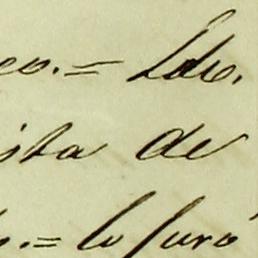 eo.= Ldo.
ista de
o.= lo juró